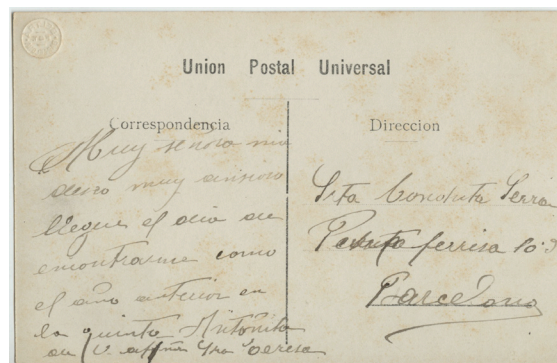 Union Postal Universal
Correspondencia
Direccion
Muy señora mia
deseo muy ansioso
llegue el dia de
encontrarme como
el año anterior en
la quinta Antoñita
su
Srta Conduta Serra
ferrisa 10·3
Barcelona